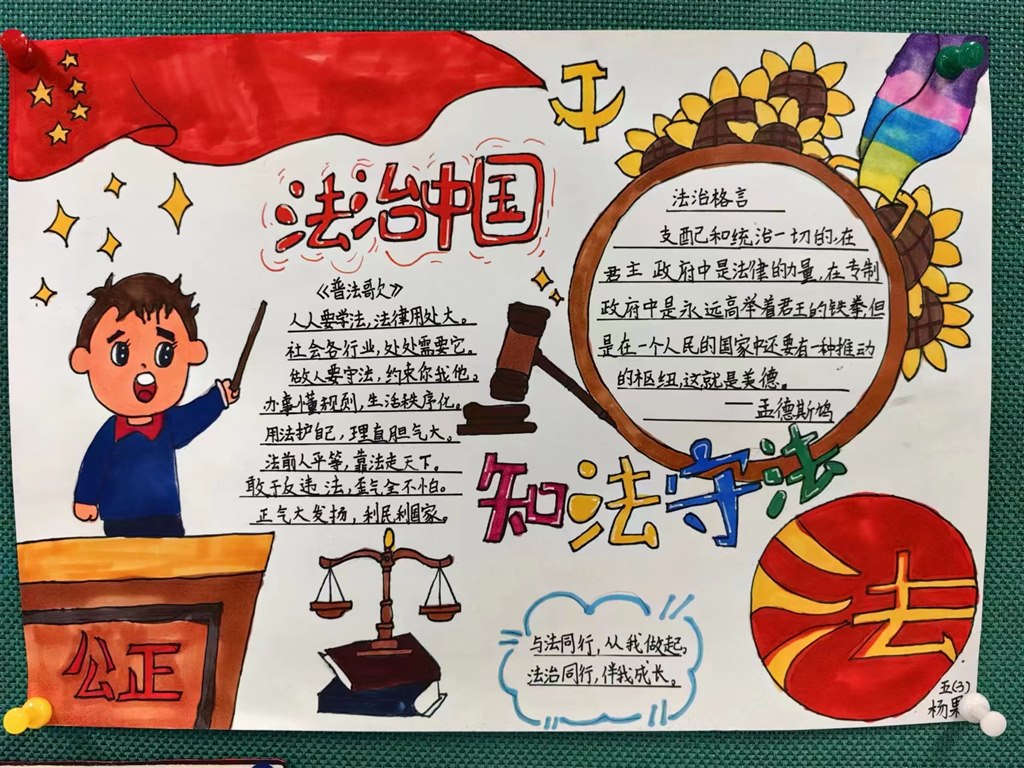 法治中国
《普法歌》
人人要学法,法律用处大。
社会各行业,处处需要它。
做人要守法,约束你我他。
办事懂规则,生活秩序化。
用法护自己,理直胆气大。
法前人平等,靠法走天下。
敢于反违法,歪气全不怕。
正气大发扬,利民利国家。
法治格言
支配和统治一切的,在
君主政府中是法律的力量,在专制
政府中是永远高举着君王的铁拳,但
是在一个人民的国家中还要有一种推动
的枢纽,这就是美德。
——孟德斯鸠
知法守法
公正
与法同行,从我做起,
法治同行,伴我成长。
法
五(3)
杨果